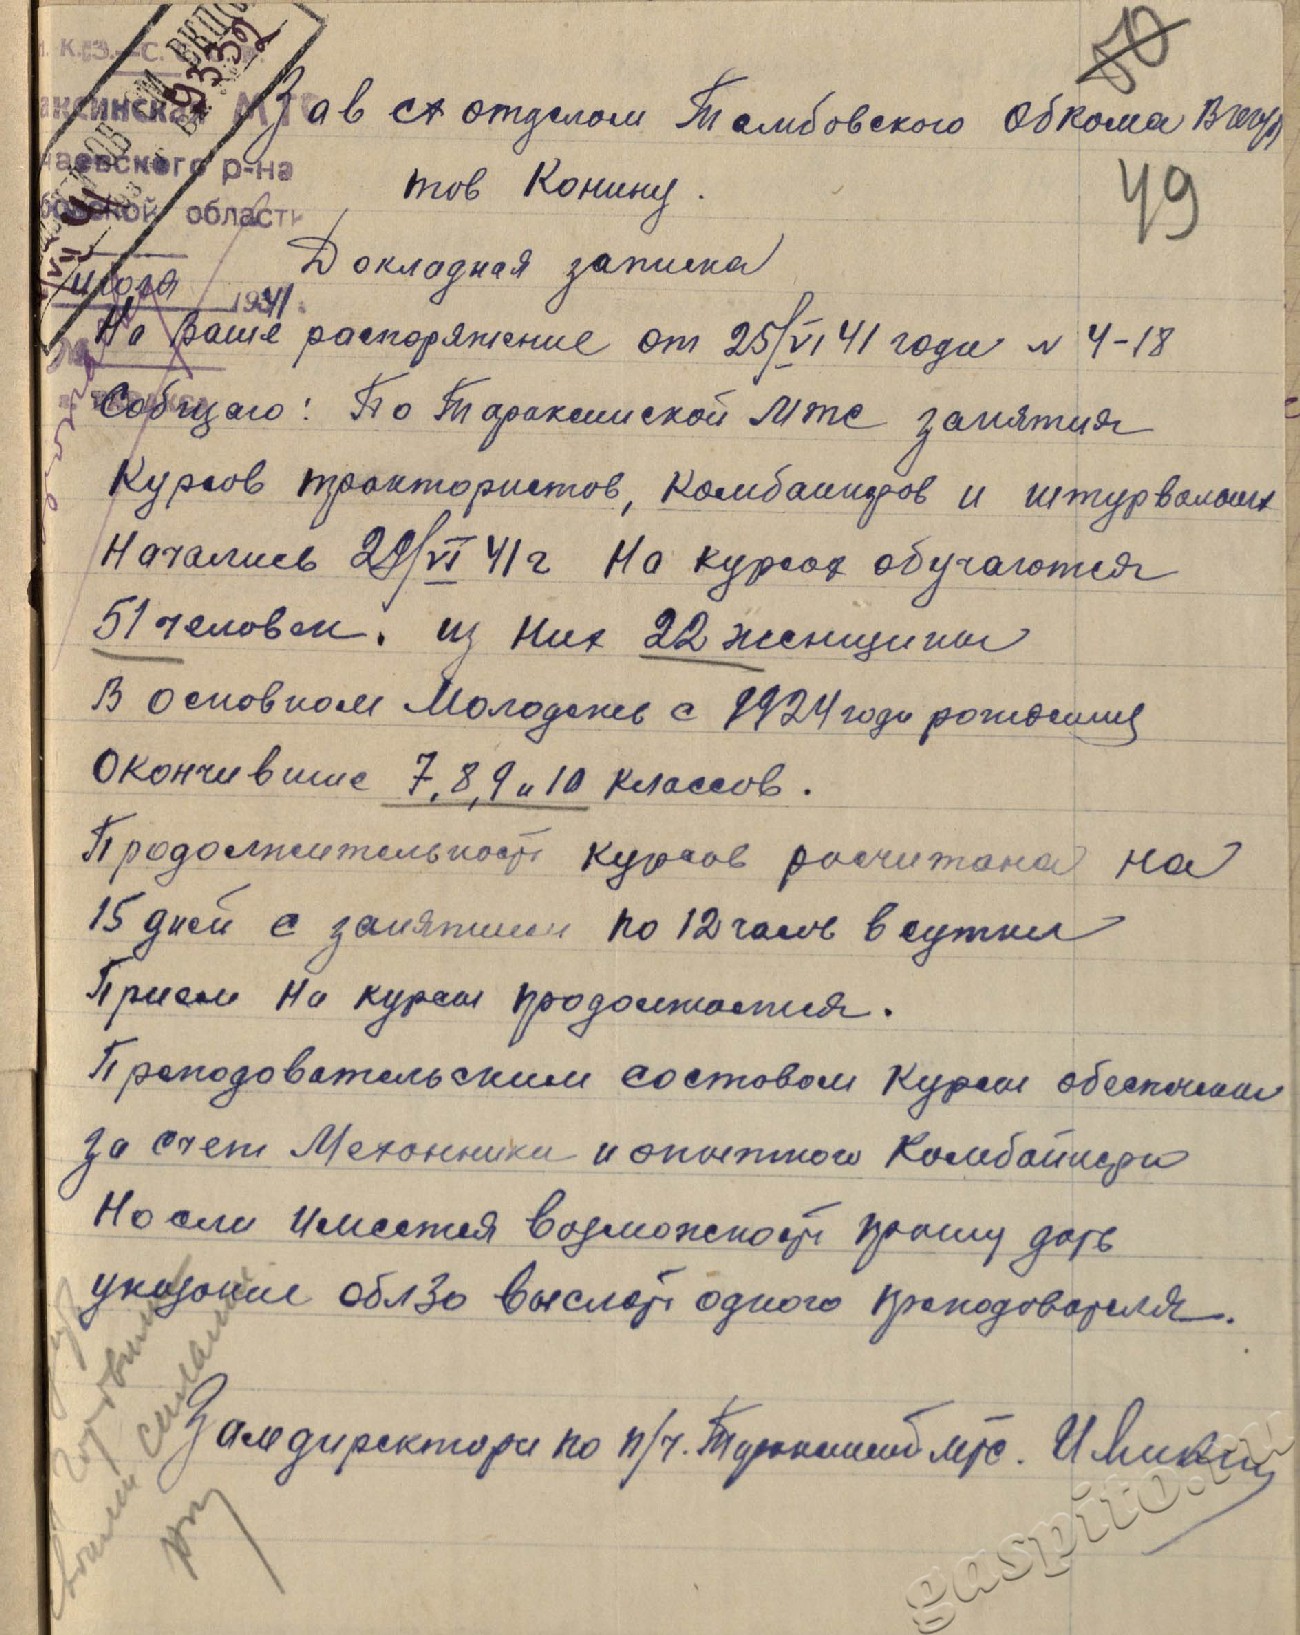 50
49
9332
Н. К. З. — С.
аксинская МТС
наевского р-на
бовской области
июля 1941 г.
Зав сх отделом Тамбовского обкома
тов Конину.
Докладная записка
На Ваше распоряжение от 25/VI 41 года № 4-18
Собщаю: По Тараксинской МТС занятия
Курсов трактористов, комбаинеров и штурвалных
Начались 29/VI 41 г На курсах обучаются
51 человек. из них 22 женщины
В основном Молодежь с 1924 года рождения
Окончившие 7, 8, 9 и 10 классов.
Продолжительность курсов расчитана на
15 дней с занятием по 12 часов в сутки
Прием На курсы продолжается.
Преподовательским составом Курсы обеспечены
за счет Механника и опытного Комбайнера
Но если имеется возможность прошу дать
указание облзо выслать одного преподователя.
Замдиректора по п/ч. Тараксинской мтс.
своими силами
gaspito.ru